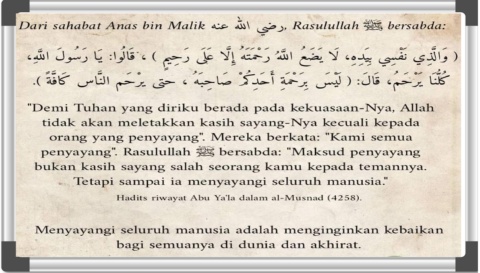 Dari sahabat Anas bin Malik رضي الله عنه, Rasulullah ﷺ bersabda:
( وَالَّذِي نَفْسِي بِيَدِهِ، لَا يَضَعُ اللَّهُ رَحْمَتَهُ إِلَّا عَلَى رَحِيمٍ ) ، قَالُوا: يَا رَسُولَ اللَّهِ،
كُلُّنَا يَرْحَمُ، قَالَ: ( لَيْسَ بِرَحْمَةِ أَحَدِكُمْ صَاحِبَهُ ، حتى يَرْحَمَ النَّاسَ كَافَّةً ).
"Demi Tuhan yang diriku berada pada kekuasaan-Nya, Allah
tidak akan meletakkan kasih sayang-Nya kecuali kepada
orang yang penyayang". Mereka berkata: "Kami semua
penyayang". Rasulullah ﷺ bersabda: "Maksud penyayang
bukan kasih sayang salah seorang kamu kepada temannya.
Tetapi sampai ia menyayangi seluruh manusia."
Hadits riwayat Abu Ya'la dalam al-Musnad (4258).
Menyayangi seluruh manusia adalah menginginkan kebaikan
bagi semuanya di dunia dan akhirat.